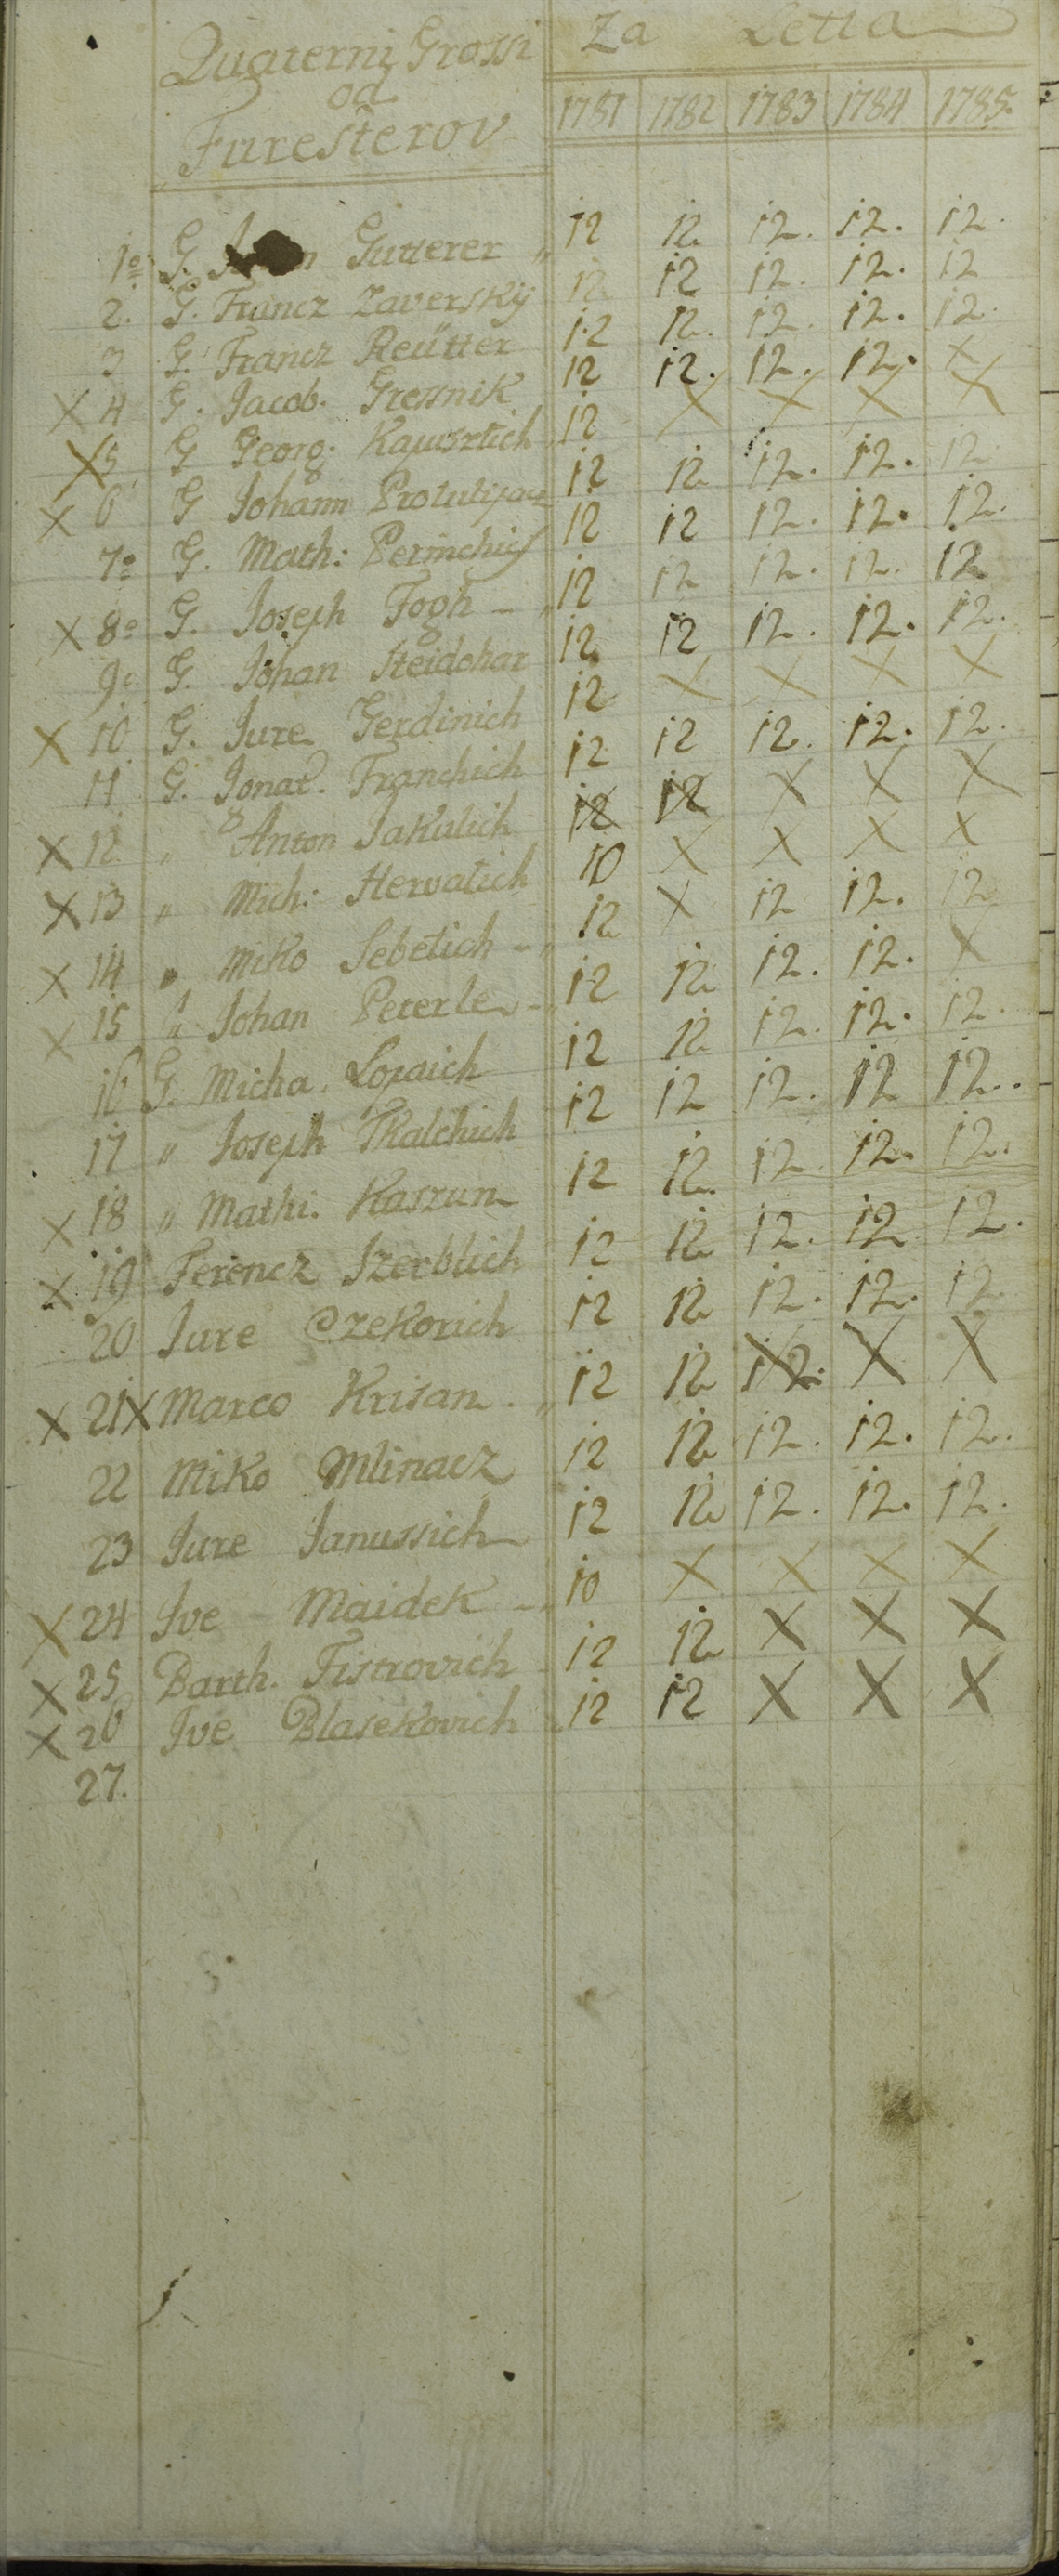 Quaterni Grossi Za Letta
od
Furesterov 1781 1782 1783 1784 1785.
1o G. Gutterer „ 12 12 12. 12. 12.
2. G. Francz Zaverskÿ 12 12 12. 12. 12
3 G. Francz Reütter 12 12. 12. 12. 12.
X 4 G. Jacob. Gressnik 12 12. 12. 12. X
X 5 G Georg. 12 X X X X
X 6 G Johann 12 12 12. 12. 12.
7o G. Math: 12 12 12. 12. 12.
X 8o G. Joseph Fogh „ 12 12 12. 12. 12
9o G. Johan Steidohar 12. 12 12. 12. 12.
X 10 G. Jure Gerdinich 12 X X X X
11 G. Jgnat. Franchich 12 12 12. 12. 12.
X 12 „ Anton Jakulich 12 12 X X X
X 13 „ Mich: Hervatich 10 X X X X
X 14 „ Miko Sebetich „ 12 X 12 12. 12
X 15 „ Johan Peterle „ 12 12 12. 12. X
16 G. Micha. Lopaich 12 12 12. 12. 12.
17 „ Joseph Tkalchich 12 12 12. 12 12..
X 18 „ Mathi. Kaszun 12 12. 12. 12. 12.
X 19 Ferencz Szerblich 12 12 12. 12 12.
20 Jure Czekovich 12 12 12. 12. 12.
X 21 X Marco Krisan. „ 12 12 12. X X
22 Miko Mlinacz 12 12 12. 12. 12.
23 Jure Janussich 12 12 12. 12. 12.
X 24 Ive Maidek „ 10 X X X X
X 25 Barth. Fistrovich 12 12 X X X
X 26 Ive Blasekovich 12 12 X X X
27.